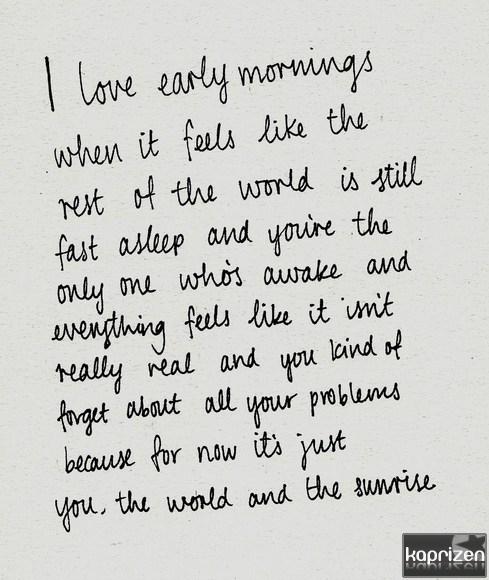 I love early mornings
when it feels like the
rest of the world is still
fast asleep and you're the
only one who's awake and
everything feels like it isn't
really real and you kind of
forget about all your problems
because for now it's just
you, the world and the sunrise
kaprizen